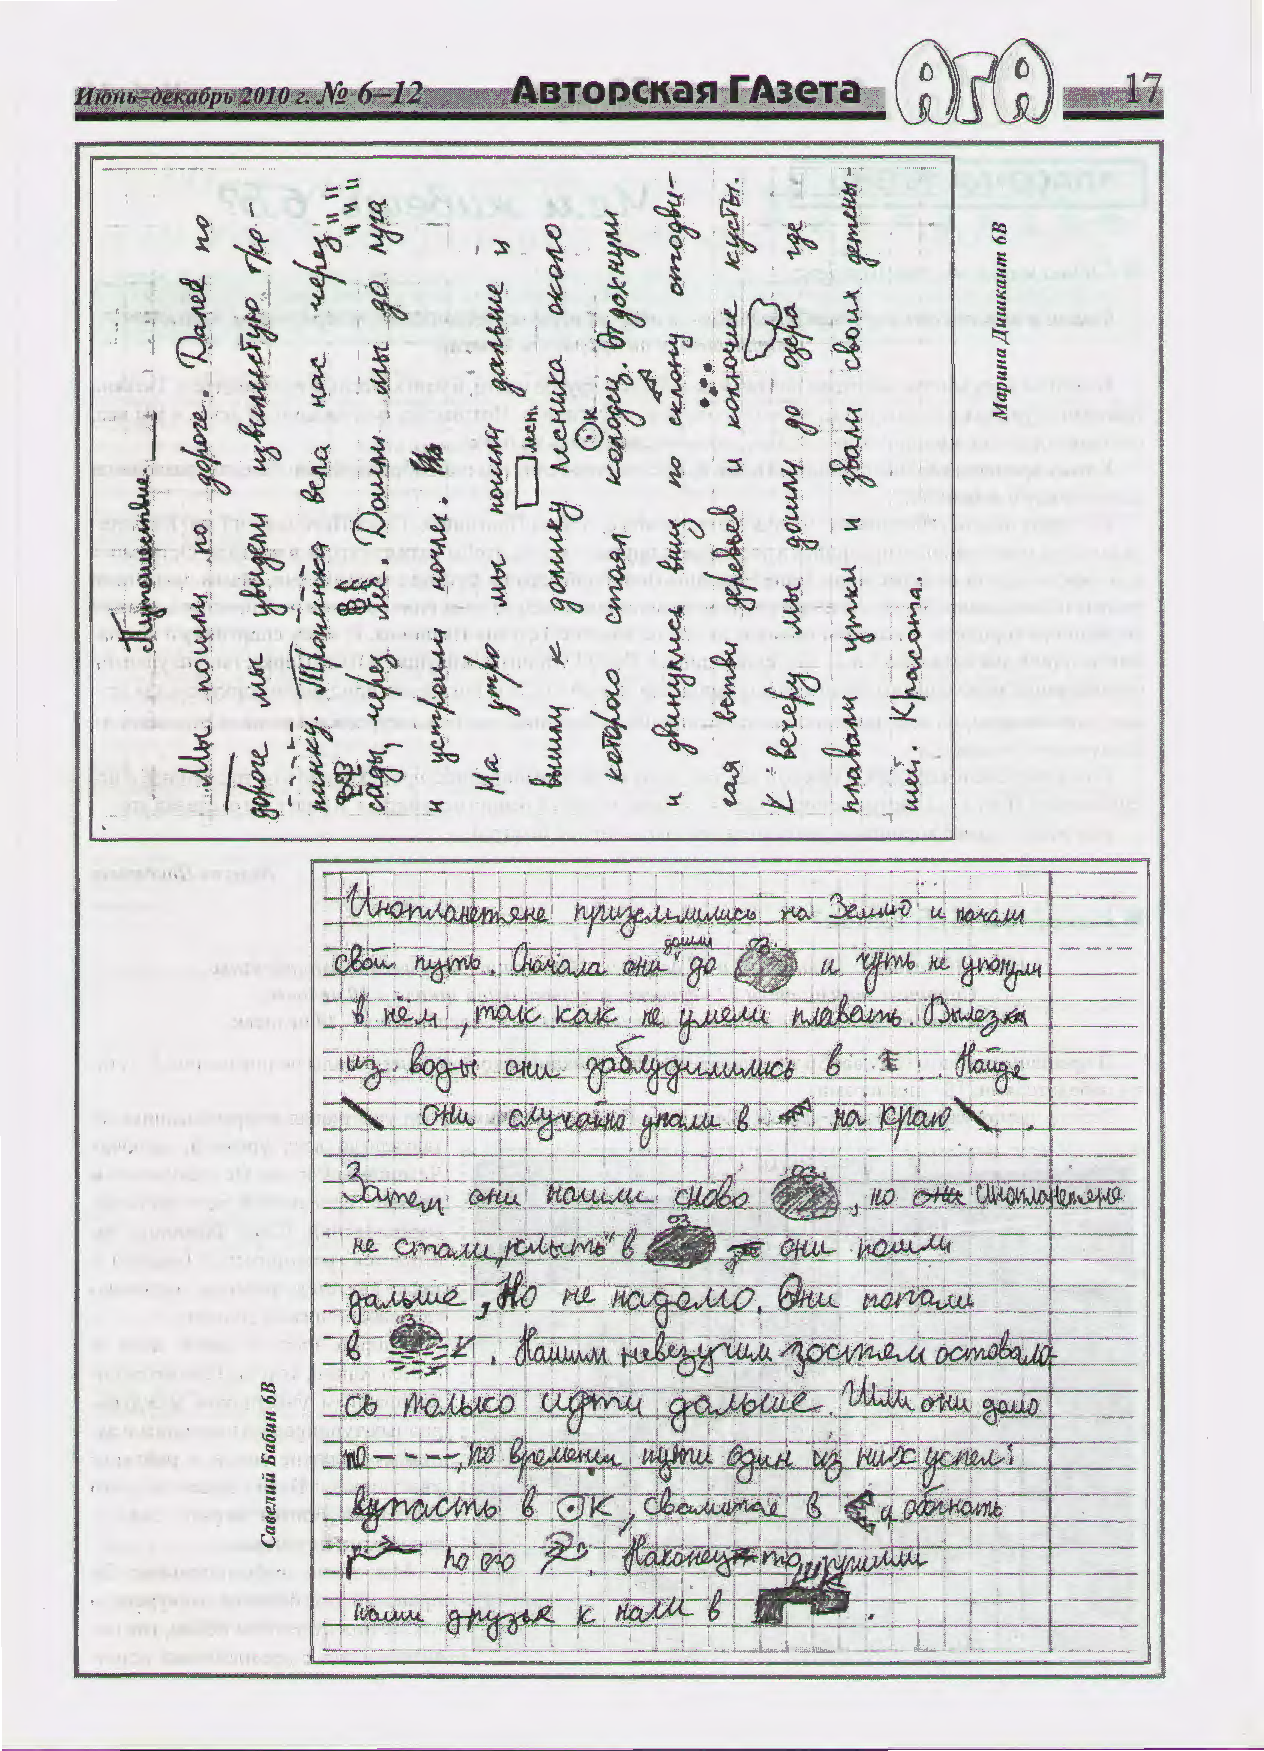 Июнь–декабрь 2010 г. № 6–12
Авторская ГАзета
АГА
17
Путешествие
Мы пошли по дороге. Далее по
дороге мы увидели извилистую тро-
пинку. Тропинка вела нас через
сады, через лес. Дошли мы до луга
и устроили ночлег.
На утро мы пошли дальше и
лесн.
вышли к домику лесника около
К
которого стоял колодец. Отдохнули
и двинулись вниз по склону отодви-
гая ветви деревьев и колючие кусты.
К вечеру мы дошли до озера где
плавали утки и звали своих детены-
шей. Красота.
Марина Дишкант 6В
Инопланетяне приземлились на Землю и начали
свой путь. Сначала они дошли до оз. и чуть не утонули
в нём, так как не умели плавать. Вылезли
из воды они заблудились в . Найдя
они случайно упали в на краю .
Затем они нашли снова оз. , но они инопланетяне
не стали „плыть" в оз. они пошли
дальше, Но не надолго. Они попали
в оз. . Нашим невезучим гостям оставало-
сь только идти дальше. Шли они долго
по - - - -, по времени пути один из них успел:
упасть в К, свалиться в и обогнать
по его . Наконец-то пришли
наши друзья к нам в .
Савелий Бабин 6В